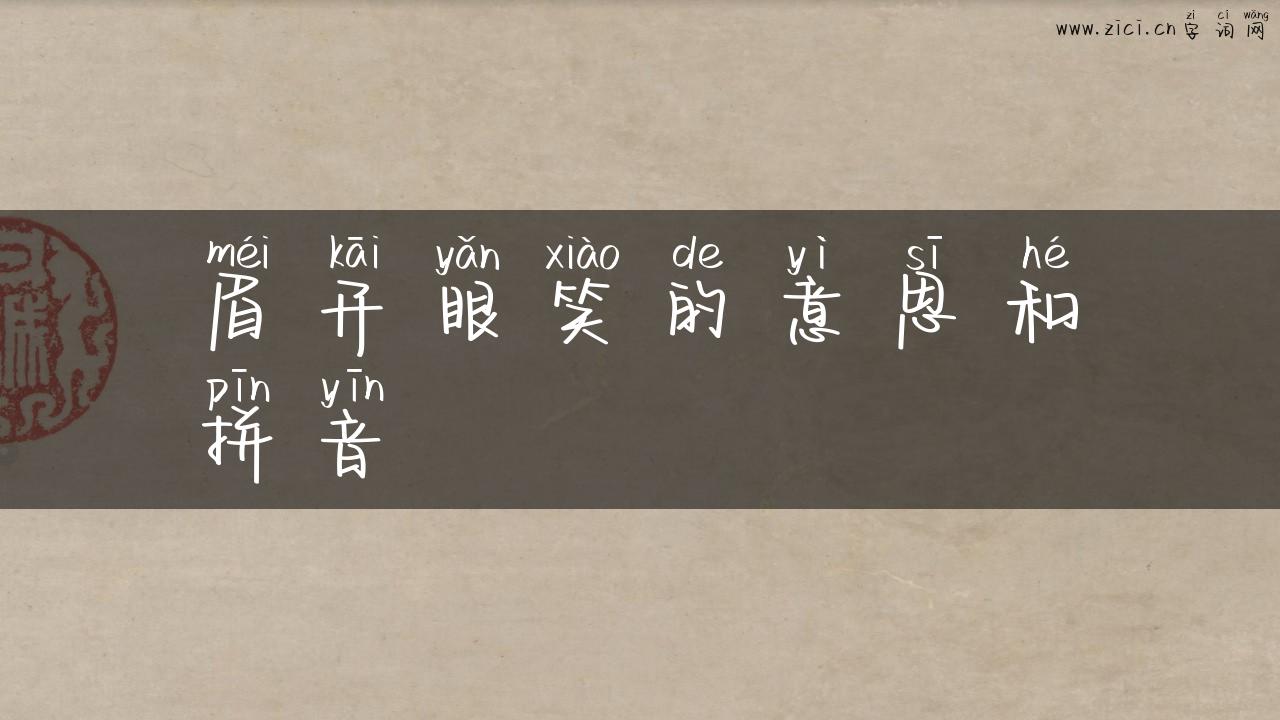 zì cí wǎng
www.zici.cn 字词网
méi kāi yǎn xiào de yì sī hé
眉开眼笑的意思和
pīn yīn
拼音